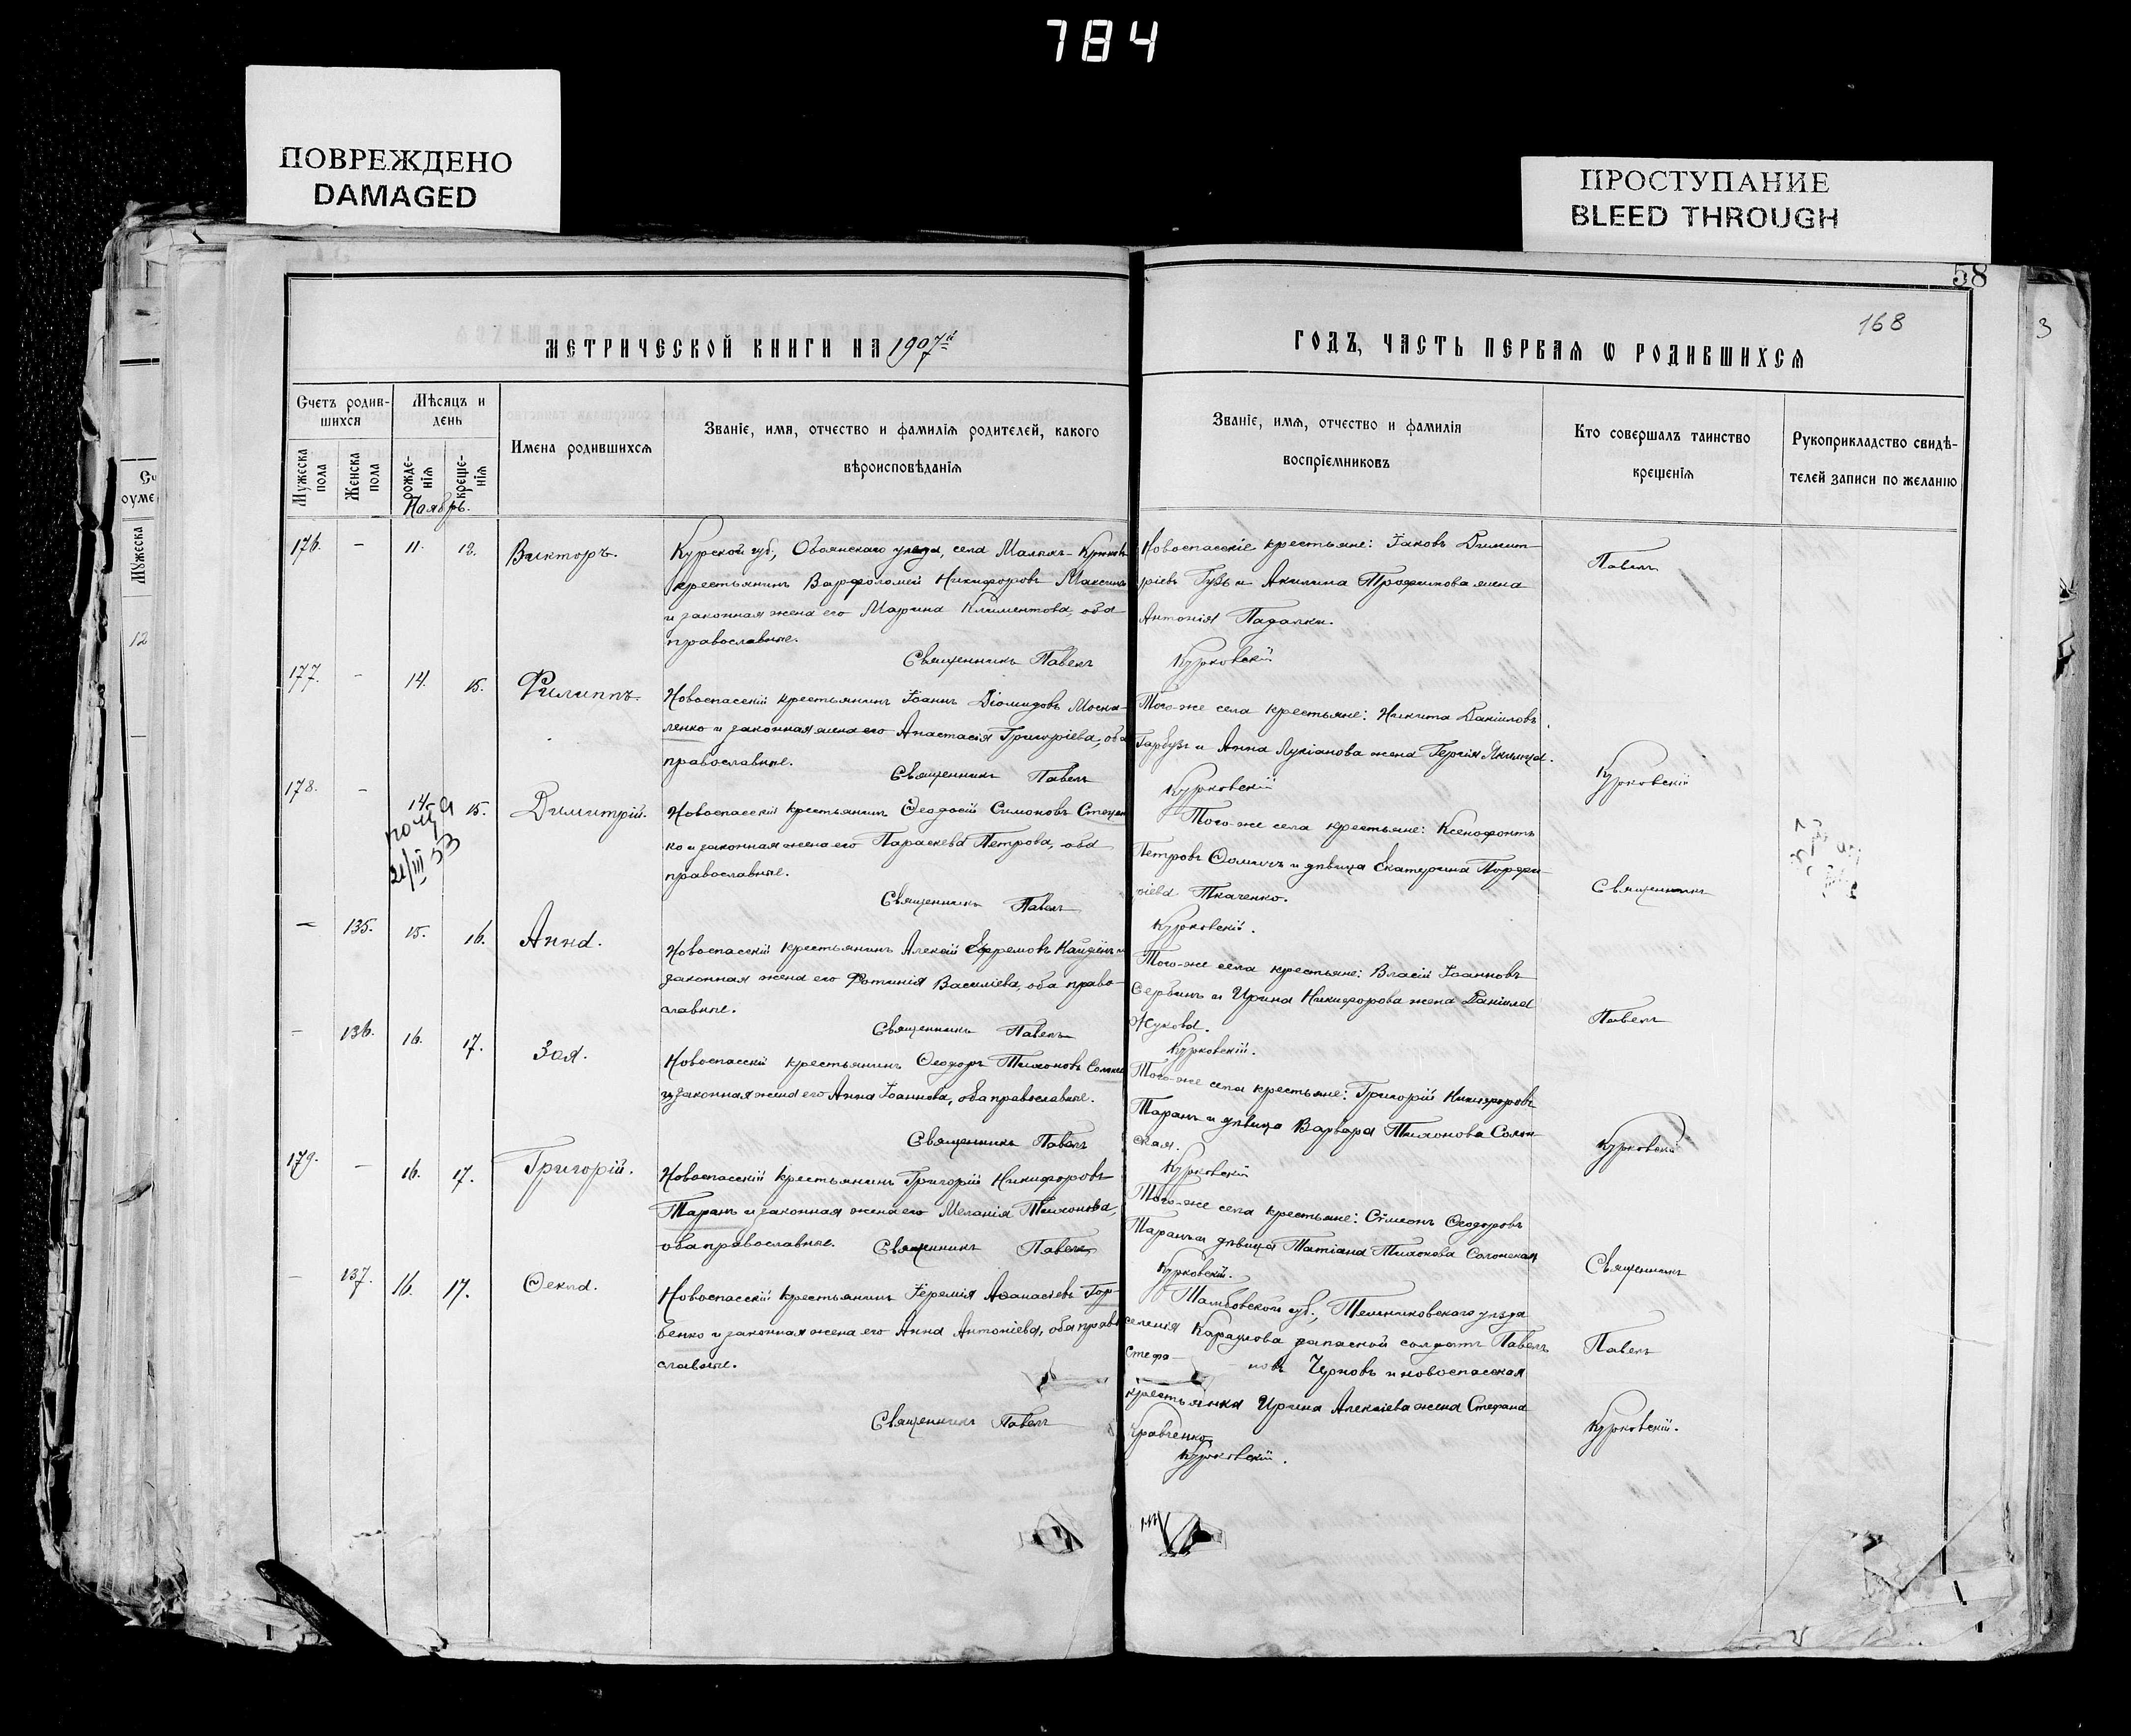 784
ПОВРЕЖДЕНО
DAMAGED
ПРОСТУПАНИЕ
BLEED THROUGH
58
168
3
МЕТРИЧЕСКОЙ КНИГИ НА 1907й
ГОДЪ, ЧАСТЬ ПЕРВАЯ Ѡ РОДИВШИХСЯ
Счетъ родив-
шихся
Мѣсяцъ и
день
Имена родившихся
Званіе, имя, отчество и фамилія родителей, какого
вѣроисповѣданія
Званіе, имя, отчество и фамилія
воспріемниковъ
Кто совершалъ таинство
крещенія
Рукоприкладство свидѣ-
телей записи по желанію
Мужеска
пола
Женска
пола
рожде-
нія
креще-
нія
Ноябрь.
оуме
Мужеска
12
176. - 11. 12. Викторъ.
Курской губ., Обоянскаго уезда, села Малыхъ-Крюковъ
крестьянинъ Варфоломей Никифоровъ
и законная жена его Марина Климентова, оба
православные.
Священникъ Павелъ
Новоспасскіе крестьяне: Іаковъ Димит-
ріевъ Гузь и Акилина Трофимова жена
Антонія Падалки.
Курковскій
Павелъ
177. - 14. 15. Филиппъ.
Новоспасскій крестьянинъ Іоаннъ Діомидовъ Моска-
ленко и законная жена его Анастасія Григоріева, оба
православные.
Священникъ Павелъ
Того-же села крестьяне: Никита Даніиловъ
Гарбузъ и Анна Лукіанова жена
Курковскій
Курковскій
178. - 14. 15. Димитрій.
21/III 53
Новоспасскій крестьянинъ Ѳеодосій Симоновъ Стецен
ко и законная жена его Параскева Петрова, оба
православные.
Священникъ Павелъ
Того-же села крестьяне: Ксенофонтъ
Петровъ Ѳомичъ и дѣвица Екатерина Порфи-
ріева Ткаченко.
Курковскій.
Священникъ
- 135. 15. 16. Анна.
Новоспасскій крестьянинъ Алексій Ефремовъ
законная жена его Фотинія Василіева, оба право-
славные.
Священникъ Павелъ
Того-же села крестьяне: Власій Іоанновъ
Сербинъ и Ирина Никифорова жена Даніила
Жукова.
Курковскій.
Павелъ
- 136. 16. 17. Зоя.
Новоспасскій крестьянинъ Ѳеодоръ Тихоновъ
и законная жена его Анна Іоаннова, оба православные.
Священникъ Павелъ
Того-же села крестьяне: Григорій Никифоровъ
Таранъ и дѣвица Варвара Тихонова Солон-
ская.
Курковскій
Курковскій
179. - 16. 17. Григорій.
Новоспасскій крестьянинъ Григорій Никифоровъ
Таранъ и законная жена его Меланія Тихонова,
оба православные. Священникъ Павелъ
Того-же села крестьяне: Сѵмеонъ Ѳеодоровъ
Таранъ и дѣвица Татіана Тихонова Солонская
Курковскій.
Священникъ
- 137. 16. 17. Ѳекла.
Новоспасскій крестьянинъ Іеремія Аѳанасіевъ Гор-
бенко и законная жена его Анна Антоніева, оба право
славные.
Священникъ Павелъ
Тамбовской губ., Темниковскаго уѣзда
селенія Караулова запасной солдатъ Павелъ
Стефа- новъ Чурновъ и новоспасская
крестьянка Ирина Алексіева жена Стефана
Кравченко.
Курковскій.
Павелъ
Курковскій.